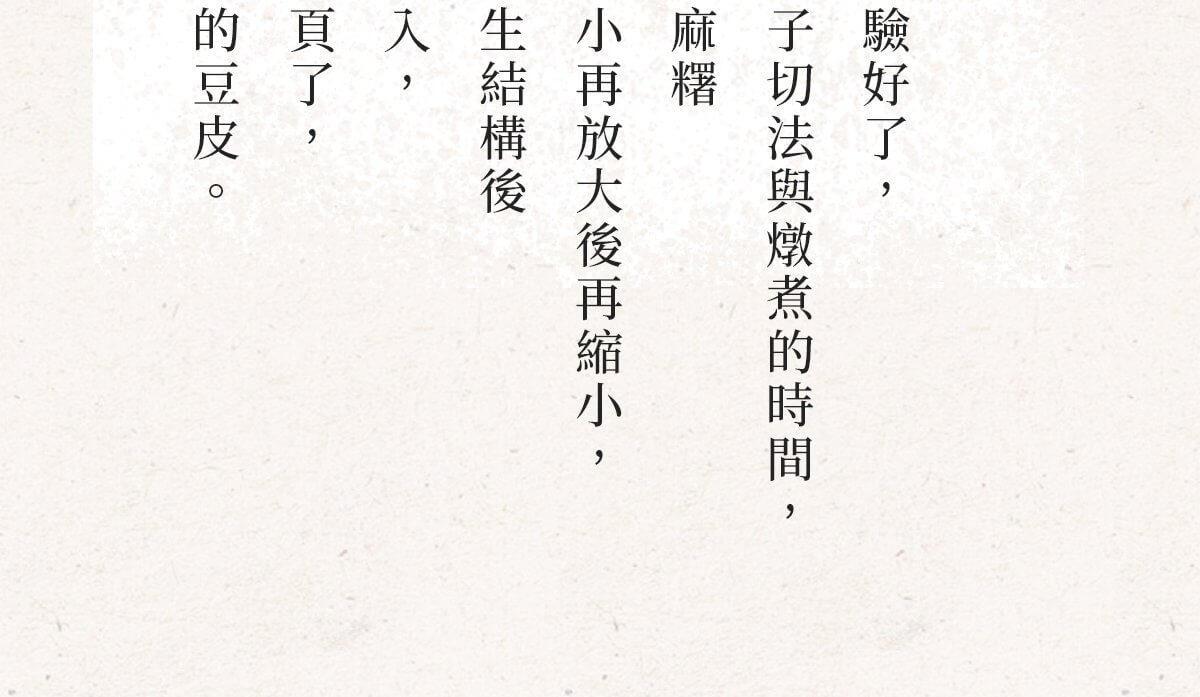 驗好了，
子切法與燉煮的時間，
麻糬
小再放大後再縮小，
生結構後
入，
頁了，
的豆皮。